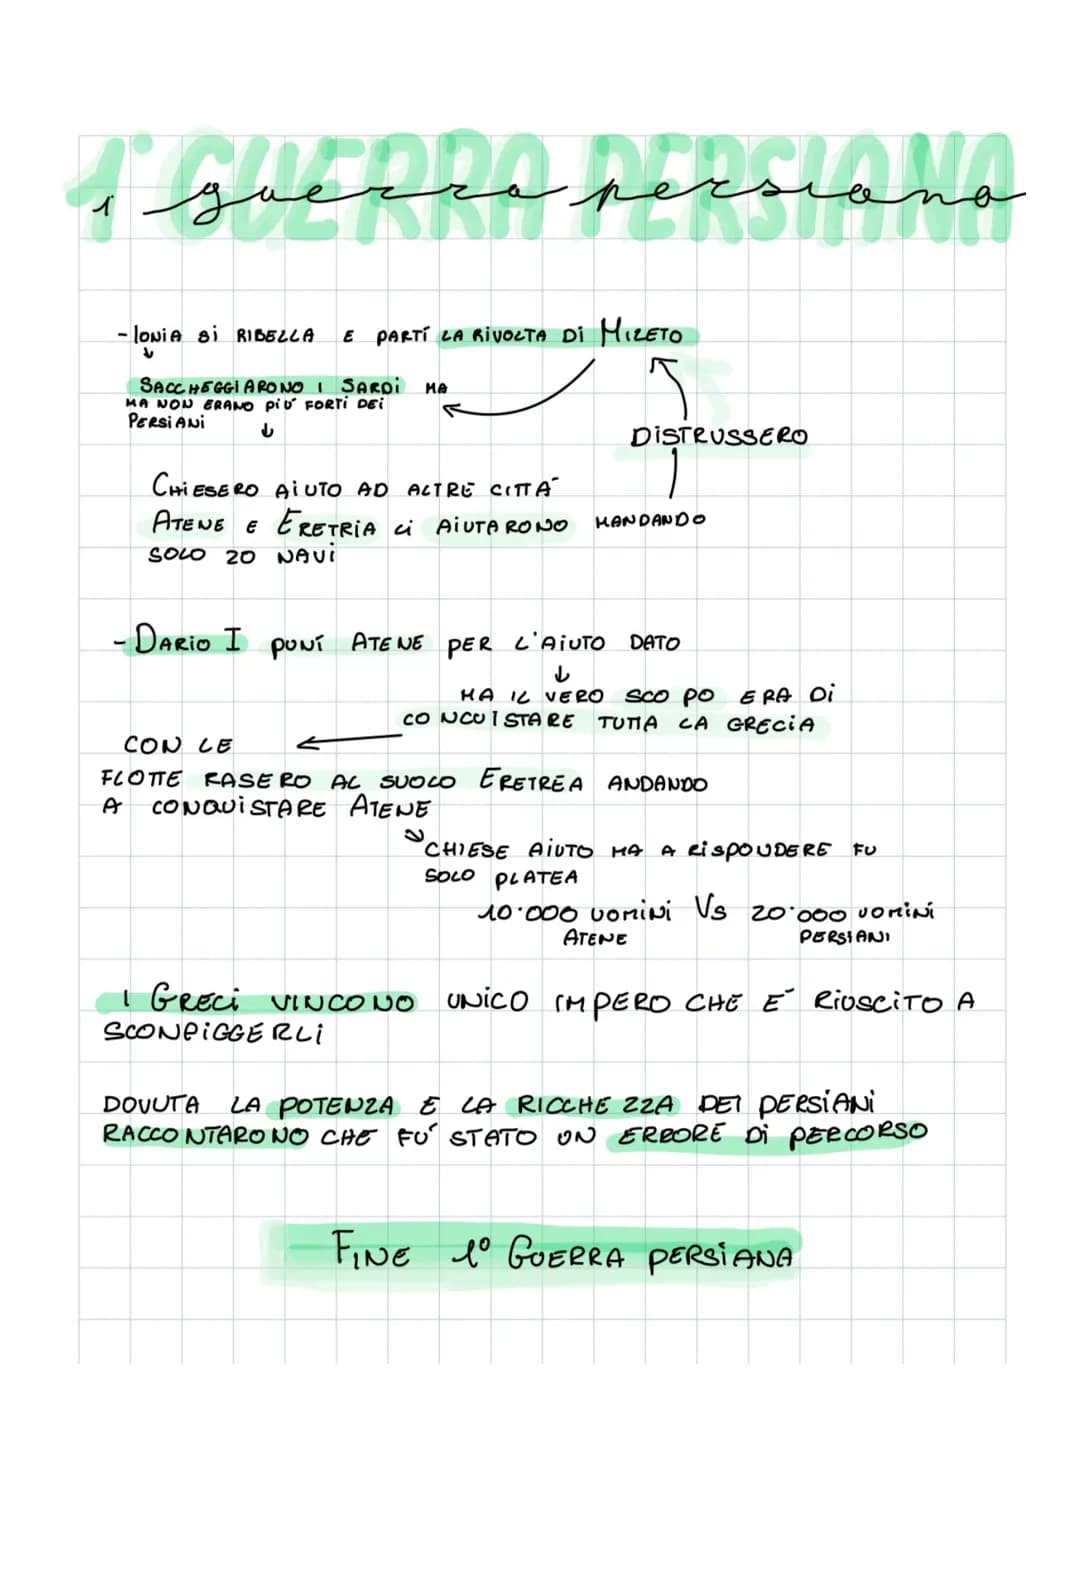 1° GUERRA PERSIANA
1 guerra persiana
- IONIA SI RIBELLA E PARTÍ LA RIVOLTA DI MILETO
SACCHEGGIARONO I SARDI MA
MA NON ERANO PIÙ FORTI DEI
PERSIANI
DISTRUSSERO
CHIESERO AIUTO AD ALTRE CITTÀ
ATENE E ERETRIA LI AIUTARONO MANDANDO
SOLO 20 NAVI
- DARIO I PUNÍ ATENE PER L'AIUTO DATO
MA IL VERO SCOPO ERA DI
CONCUISTARE TUTTA LA GRECIA
CON LE
FLOTTE RASERO AL SUOLO ERETREA ANDANDO
A CONQUISTARE ATENE
CHIESE AIUTO MA A RISPONDERE FU
SOLO PLATEA
10·000 UOMINI VS 20·000 UOMINI
ATENE PERSIANI
I GRECI VINCONO UNICO IMPERO CHE È RIUSCITO A
SCONFIGGERLI
DOVUTA LA POTENZA E LA RICCHEZZA DEI PERSIANI
RACCONTARONO CHE FÚ STATO UN ERRORE DI PERCORSO
FINE 1° GUERRA PERSIANA